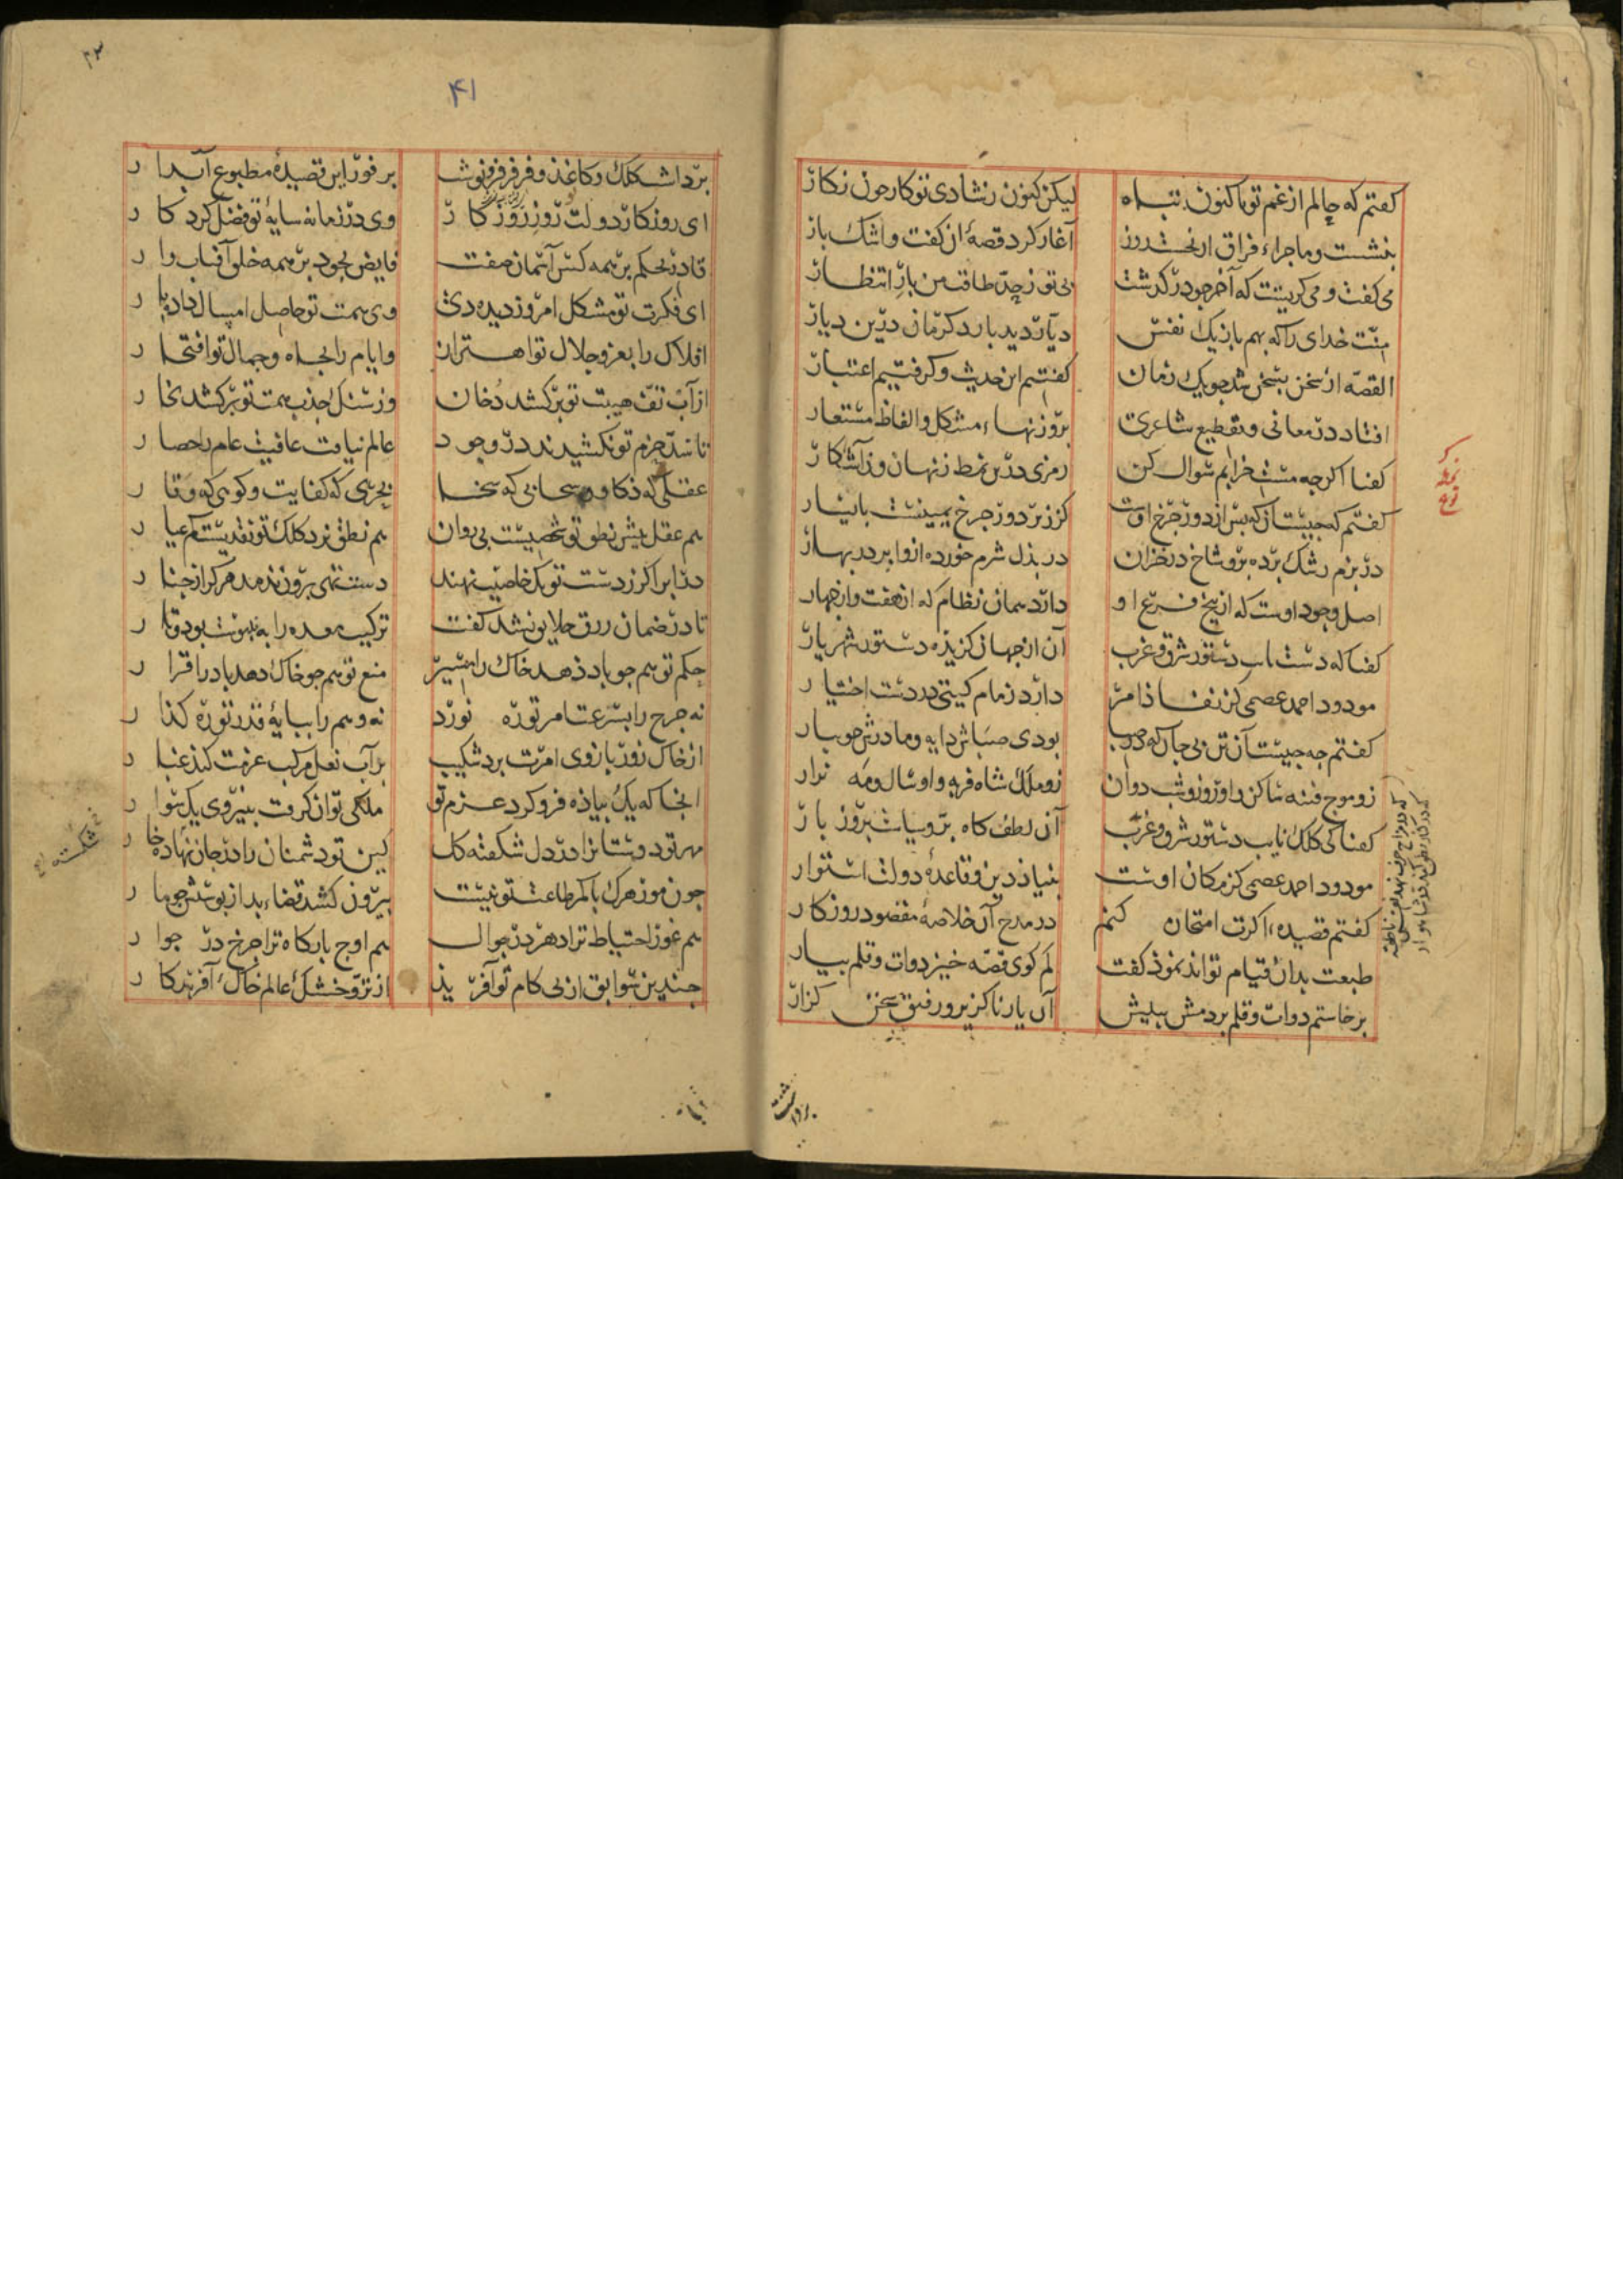 کفتم که حالم از غم تو تا کنون تباه
لیکن کنون ز شادی تو کار چون نکار
بنشست و ماجراء فراق از نخست روز
آغاز کرد قصه آن کفت و اشک بار
می کفت و می کریست که آخر چو درکذشت
بی تو ز حد طاقت من بار انتظار
منت خدای را که بهم باز یک نفس
دیار دید بار دکر مان درین دیار
القصه از سخن بسخن شد چو یک زمان
کفتیم این حدیث و کرفتیم اعتبار
افتاد در معانی و تقطیع شاعری
بر وزنهاء مشکل و الفاظ مستعار
کفتا اکر چه مست خرابم سوال کن
رمزی درین نمط ز نهان و ز آشکار
کفتم که چیست آن که پس از دور چرخ اوست
کز زبر دور چرخ یمینست با یسار
در بزم رشک برده برو شاخ در خزان
در بذل شرم خورده ازو ابر در بهار
اصل وجود اوست که از بیخ فرع او
دارد همان نظام که از هفت و از چهار
کفتا که دست نایب دستور شرق و غرب
آن از جهان کزیده دستور شهریار
مودود احمد عصمی کز نفاذ امر
دارد زمام کیتی در دست اختیار
کفتم چه چیست آن تن بی جان که در صبا
بودی صباش دایه و مادرش جویبار
زو موج فتنه ساکن و او روز و شب دوان
زو ملک شاه فربه و او سال و مه نزار
کفتا که کلک نایب دستور شرق و غرب
آن لطف کاه بر و سیاست بروز بار
مودود احمد عصمی کز مکان اوست
بنیاد دین و قاعده دولت استوار
کفتم قصیده اکرت امتحان کنم
در مدح آن خلاصه مقصود روزکار
طبعت بدان قیام تواند نمود کفت
کم کوی قصه خیز دوات و قلم بیار
برخاستم دوات و قلم بردمش بپیش
آن یار ناکزیر و رفیق سخن کزار
۴۱
۳۲
برداشت کلک و کاغذ و فرفر فرونوشت
بر فور این قصیده مطبوع آبدار
ای روزکار دولت تو روز روزکار
وی در زمانه سایه تو فضل کردکار
قادر بحکم بر همه کس آسمان صفت
فایض بجود بر همه خلق آفتاب وار
ای فکرت تو مشکل امروز دیده دی
وی همت تو حاصل امسال داده پار
افلاک را بعز و جلال تو اهتزاز
و ایام را بجاه و جمال تو افتخار
از آب تف هیبت تو برکشد دخان
وز سنک جذب همت تو برکشد بخار
تا سد حزم تو نکشیدند در وجود
عالم نیافت عافیت عام را حصار
عقلی که ذکا و سحابی که سخا
بحری که کفایت و کوهی که وقار
هم عقل پیش نطق تو شخصیست بی روان
هم نطق نزد کلک تو نقدیست کم عیار
در ابر اکر ز دست تو یک خاصیت نهند
دست تهی برون ندمد هرکز از چنار
تا در ضمان رزق خلایق نشد کفت
ترکیب معده را به نپیوست بود و تار
حکم تو هم چو باد دهد خاک را مسیر
منع تو هم چو خاک دهد باد را قرار
نه چرخ را بسرعت امر تو ره نورد
نه وهم را بپایه قدر تو ره کذار
از خاک زور بازوی امرت برد شکیب
بر آب نعل مرکب عزمت کند غبار
آنجا که یک پیاده فرو کرد عزم تو
ملکی توان کرفت بنیروی یک سوار
مهر تو دوستانرا در دل شکفته کل
کین تو دشمنان را در جان نهاده خار
شکسته
چون مور هرک با کمر طاعت تو نیست
بیرون کشد قضاء بد از پوستش چو مار
هم غور احتیاط ترا دهر در جوال
هم اوج بارکاه ترا چرخ در جوار
چندین سوابق از پی کام تو آفرید
از تر و خشک عالم خاک آفریدکار